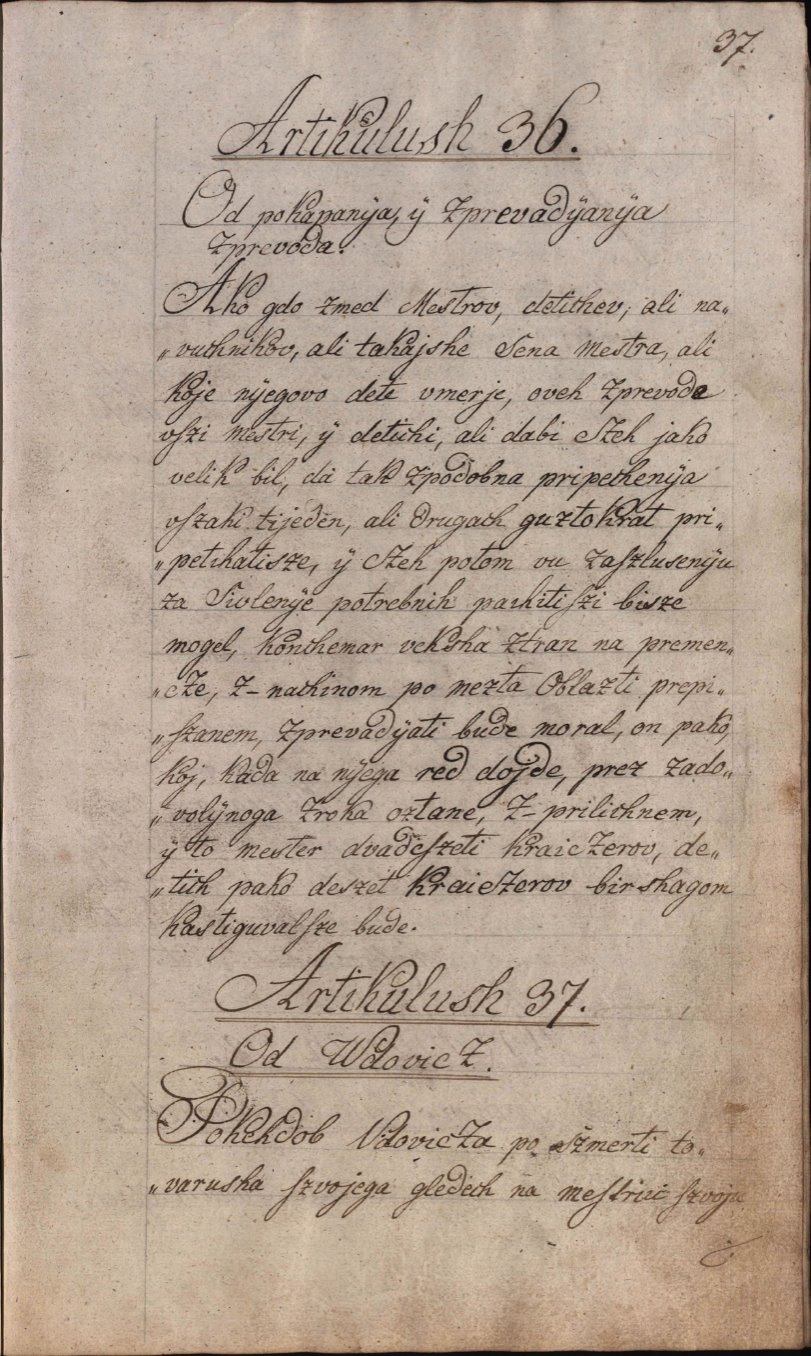 37.
Artikulush 36.
Od pokapanÿa, ÿ zprevadÿanÿa
zprevoda.
Ako gdo zmed Mestrov, detichev, ali na„
„vuchnikov, ali takajshe Sena Mestra, ali
koje nÿegovo dete vmerje, oveh zprevoda
vszi Mestri, ÿ detichi, ali dabi Czeh jako
velik bil, da tak zpodobna pripechenÿa
vszaki tijeden, ali drugach guztokrat pri„
„petchatisze, ÿ Czeh potom vu zaszlusenÿu
za Sivlenÿe potrebnih pachitiszi bisze
mogel, konchemar veksha ztran na premen„
„cze, z- nachinom po mezta Oblazti prepi„
„szanem, zprevadÿati bude moral, on pako,
koj, kada na nÿega red dojde, prez zado„
„volÿnoga zroka oztane, z- prilichnem,
ÿ to mester dvadeszeti kraiczerov, de„
„tich pako deszet kraiczerov birshagom
kastiguvalsze bude.
Artikulush 37.
Od Wdovicz.
Pokehdob Vdovicza po szmerti to„
„varusha szvojega gledech na mestriu szvoju